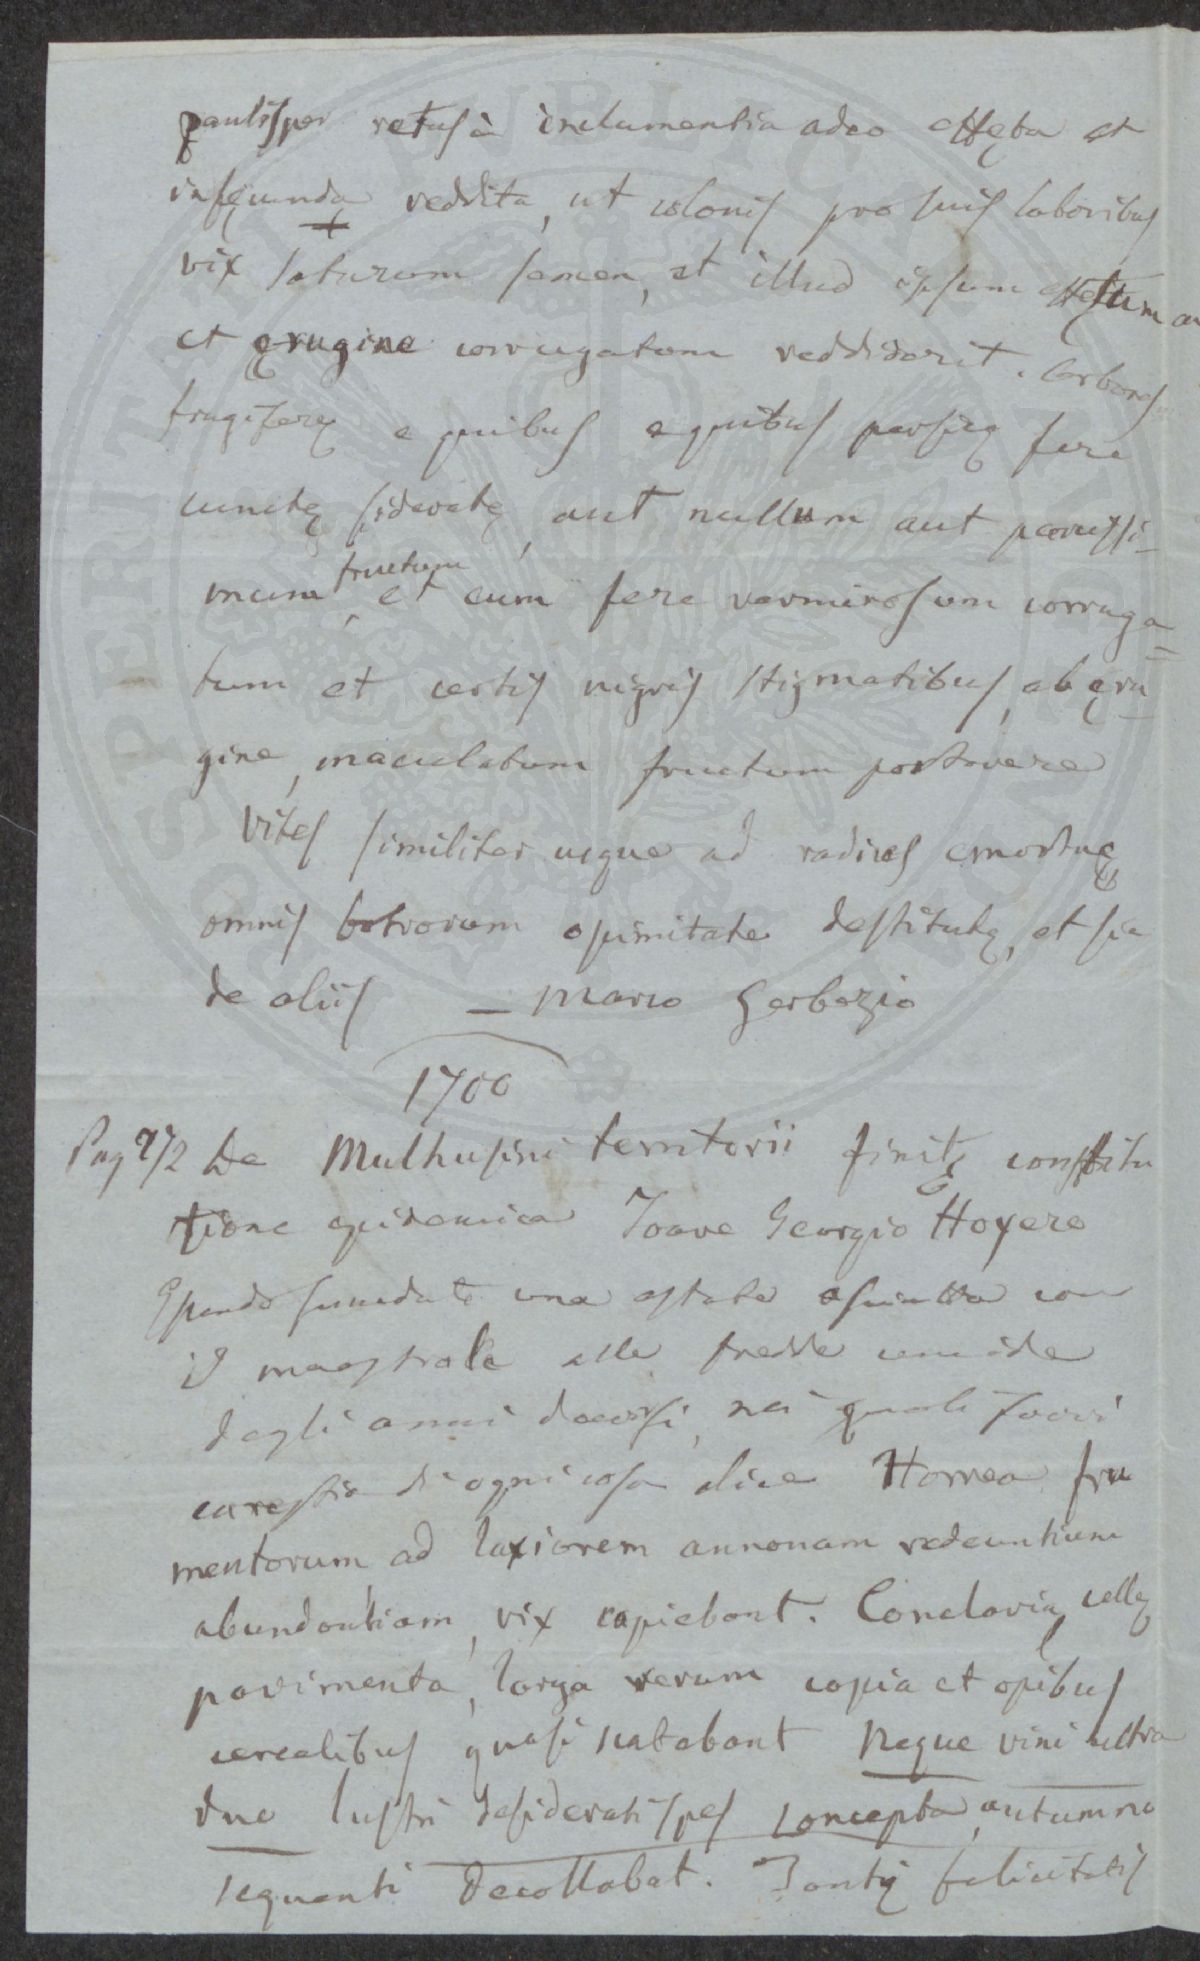 paulisper retusà inclementia adeo effęta et
infęcunda reddita, ut colonis pro suis laboribus
vix saturum semen, et illud ipsum effętum
et ęrugine corrugatum reddiderit. Carbones
frugiferę e quibus persicę fere
cunctę sideratę, aut nullum aut parvissi-
mum fructum, et eum fere verminosum corruga=
tum et certis nigris stigmatibus, ab ęru-
gine, maculatum fructum portavere
Vites similiter usque ad radices emortuę
omnis botrorum opimitate destitutę, et sic
de aliis — Marco Gerbezio
1700
Pag 7/2 De Mulhusini territorii finitę constitu
tione epidemica Joane Georgio Hoyero
Essendo succeduta una estate asciutta con
il maestrale alle fredde umide
degli anni decorsi, nei quali fuvvi
carestia di ogni cosa dice Horrea fru
mentorum ad laxiorem annonam redeuntium
abundantiam, vix capiebant. Conclavia, cellę
pavimenta, larga rerum copia et opibus
cerealibus quasi natabant neque vini ultra
duo lustri desiderati spes concepta, autumno
sequenti decollabat. Tantę felicitatis